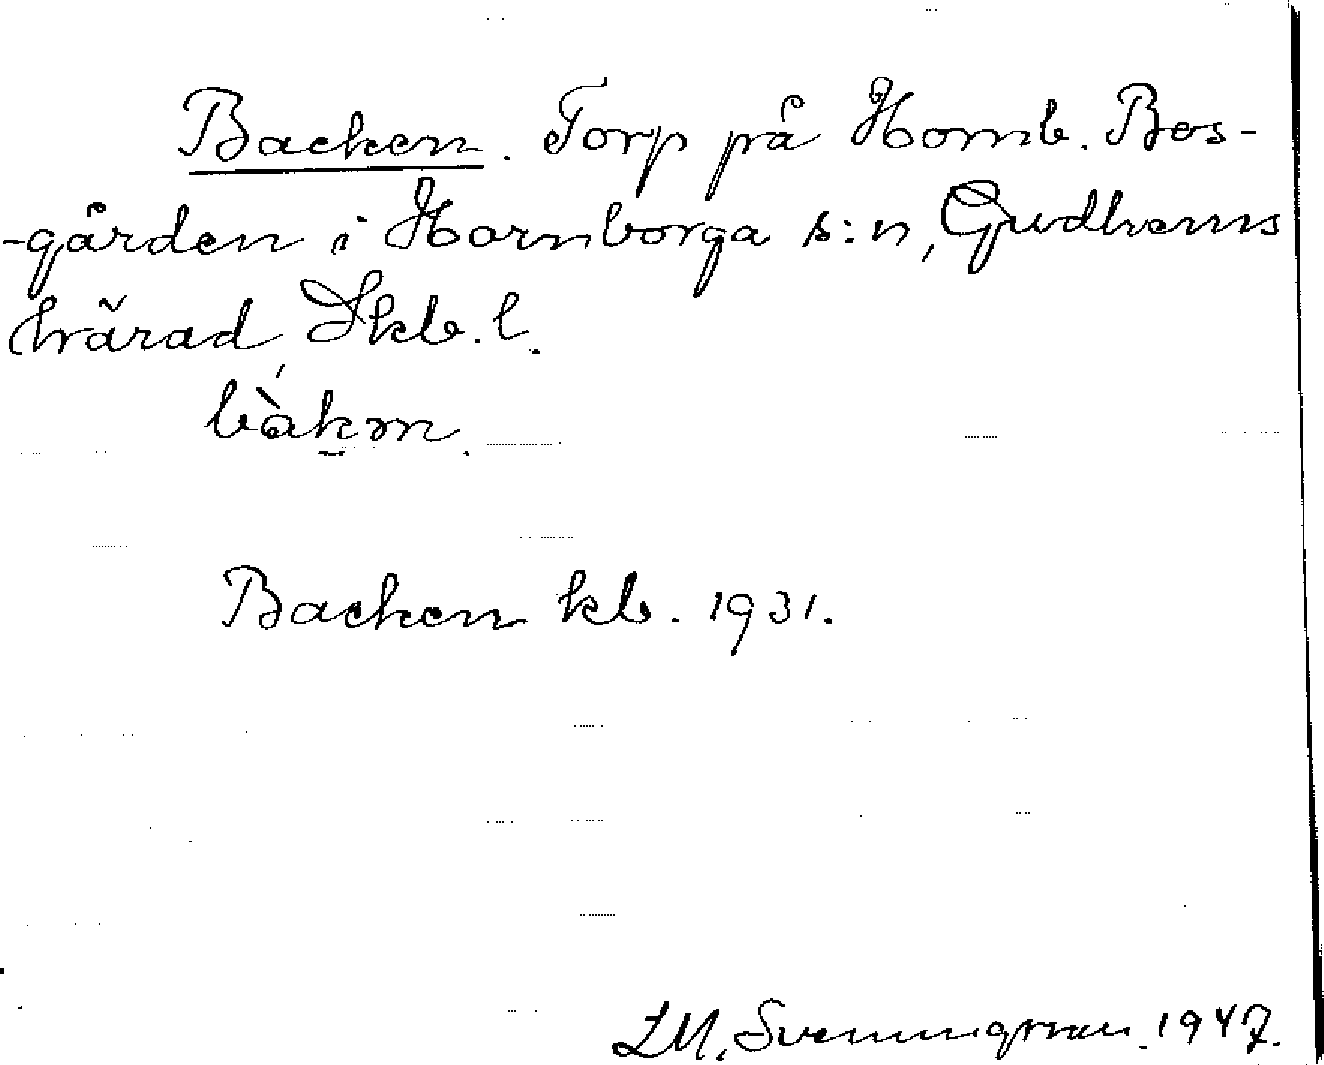 Backen. Torp på Hornb. Bos-
-gården i Hornborga s:n, Gudhems
härad Skb. l.
bàkən
Backen kb. 1931.
L M, Svenungsson. 1947.